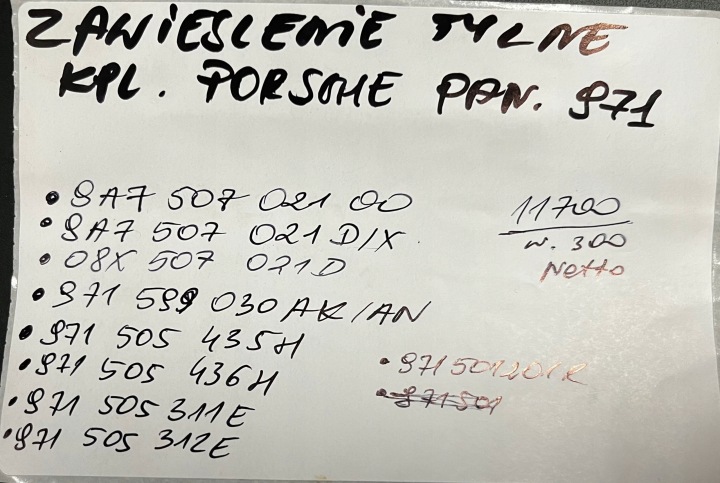 ZAWIESZENIE TYLNE
KPL. PORSCHE PAN. 971
• 9A7 507 021 00
• 9A7 507 021 D/X
• 08X 507 021 D
• 971 599 030 AK/AN
• 971 505 435H
• 971 505 436H
• 971 505 311E
• 971 505 312E
11700
w. 300
Netto
• 971 501201R
• 971 501